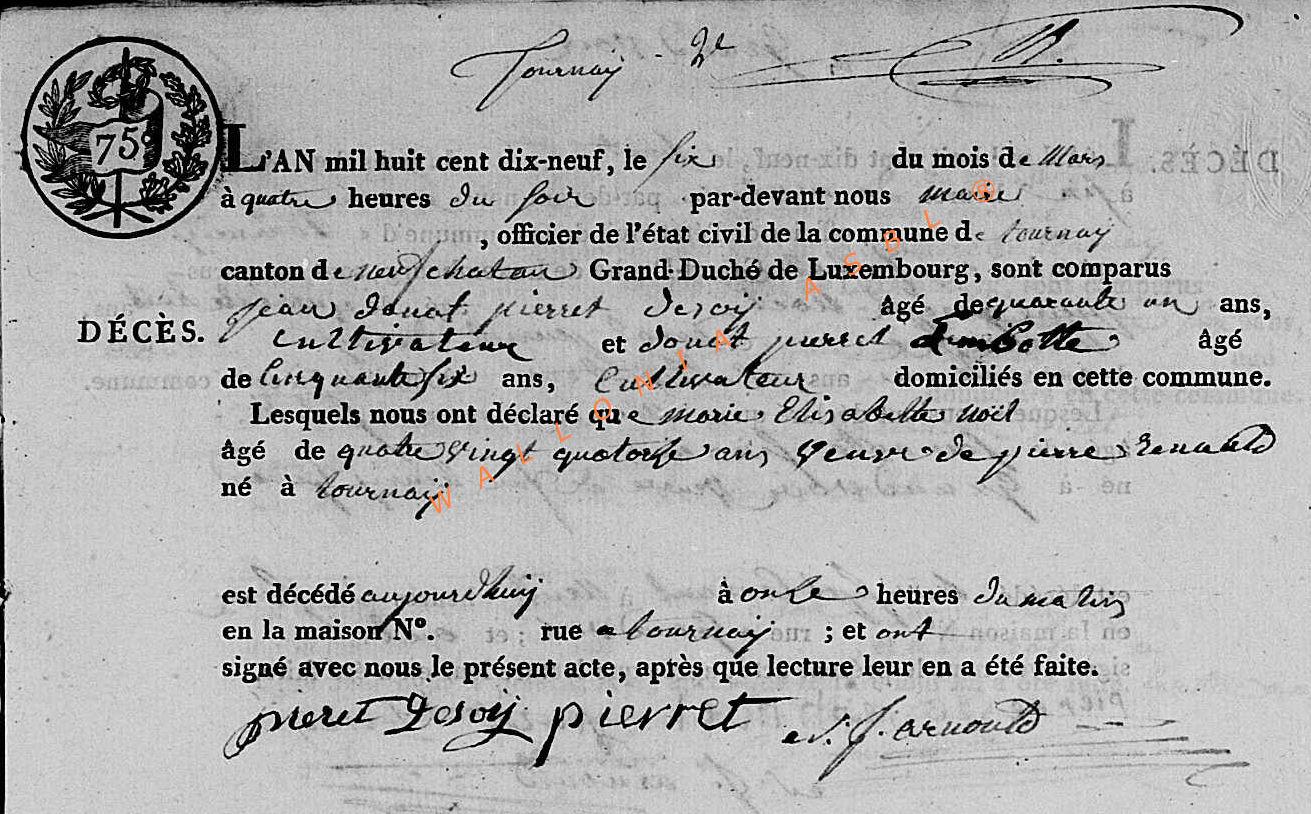 Tournay - 2e
75c
L'AN mil huit cent dix-neuf, le six du mois de Mars
à quatre heures du soir par-devant nous maire
, officier de l'état civil de la commune de tournay
canton de neufchatau Grand-Duché de Luxembourg, sont comparus
jean donat pierret desoij âgé de quarante un ans,
DÉCÈS. cultivateur et donat pierret âgé
de cinquante six ans, Cultivateur domiciliés en cette commune.
Lesquels nous ont déclaré que marie Elisabette noël
âgé de quatre vingt quatorse ans veuve de pierre renauld
né à tournaij
est décédé aujourdhuij à onse heures du matin
en la maison No. rue a tournaij ; et ont
signé avec nous le présent acte, après que lecture leur en a été faite.
pieret Desoij pierret j. arnould
WALLONIA ASBL ®